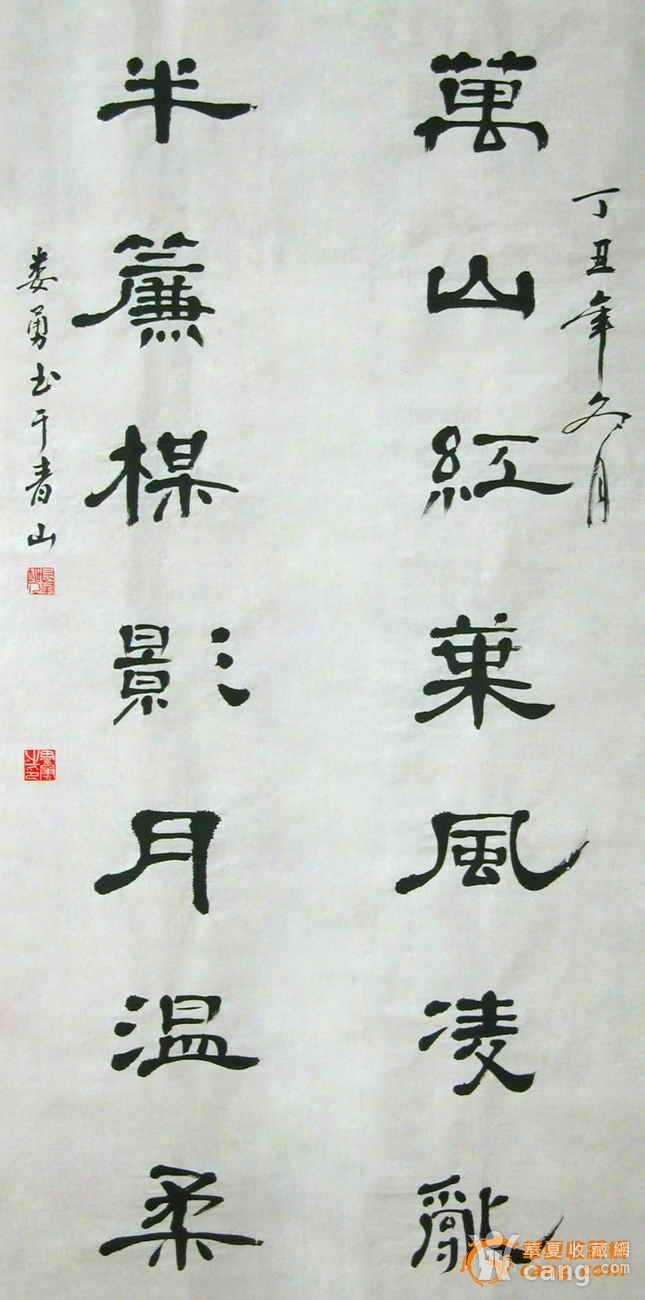 丁丑年冬月
萬山紅葉風凌亂
半簾楳影月温柔
娄勇书于青山
華夏收藏網
cang.com